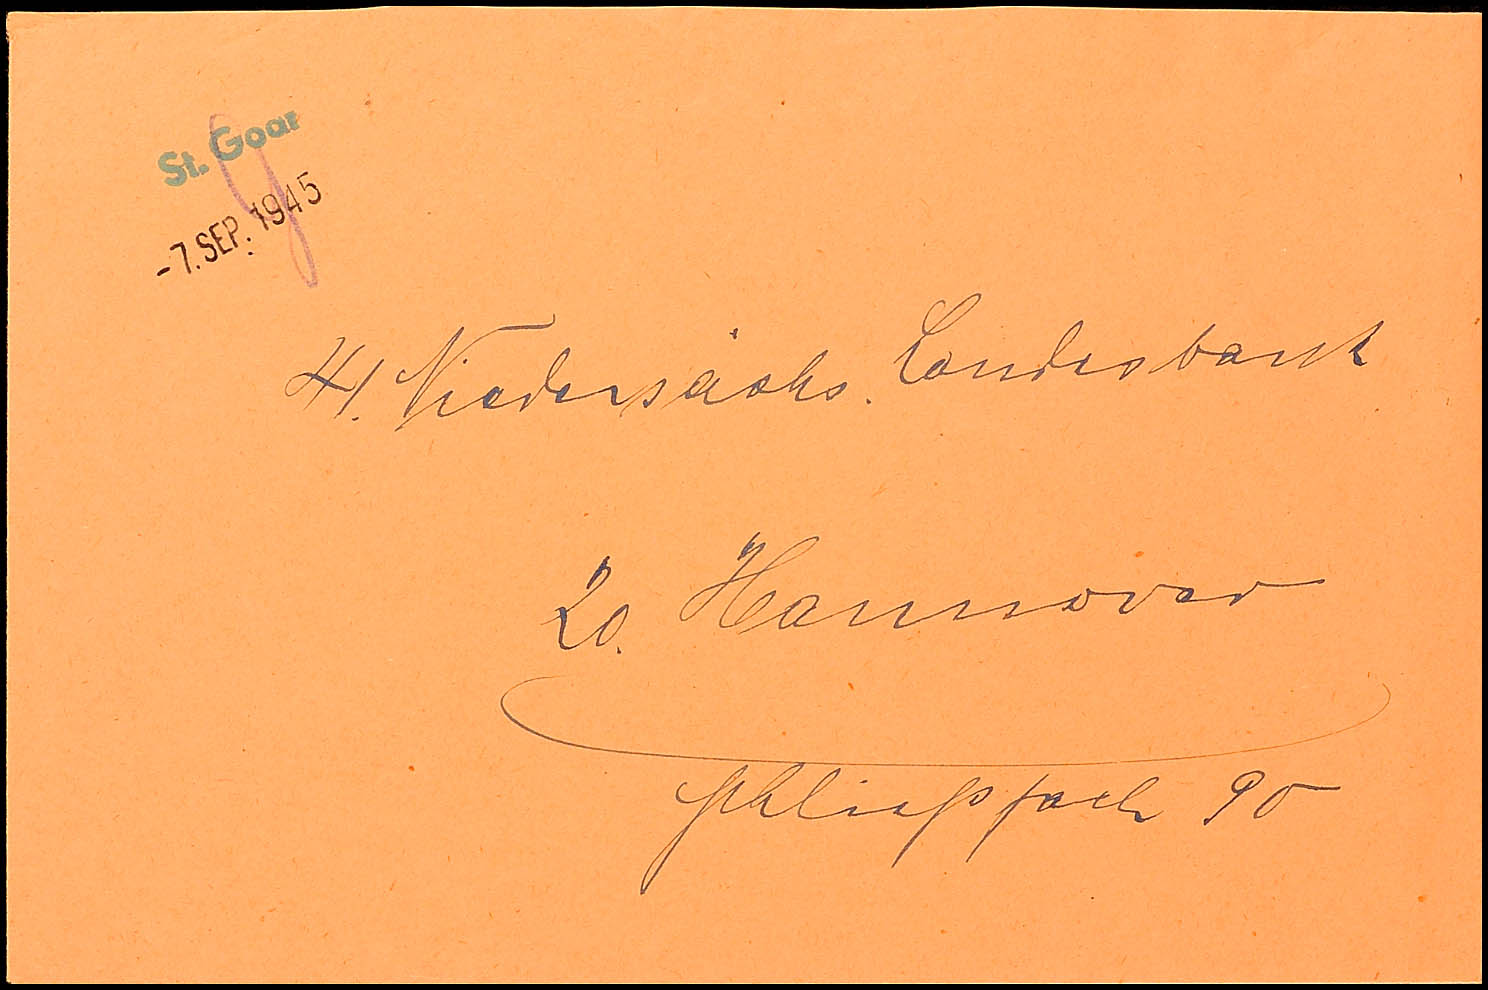 St. Goar
-7. SEP. 1945
H. Niedersächs. Landesbank
20. Hannover
Schließfach 90